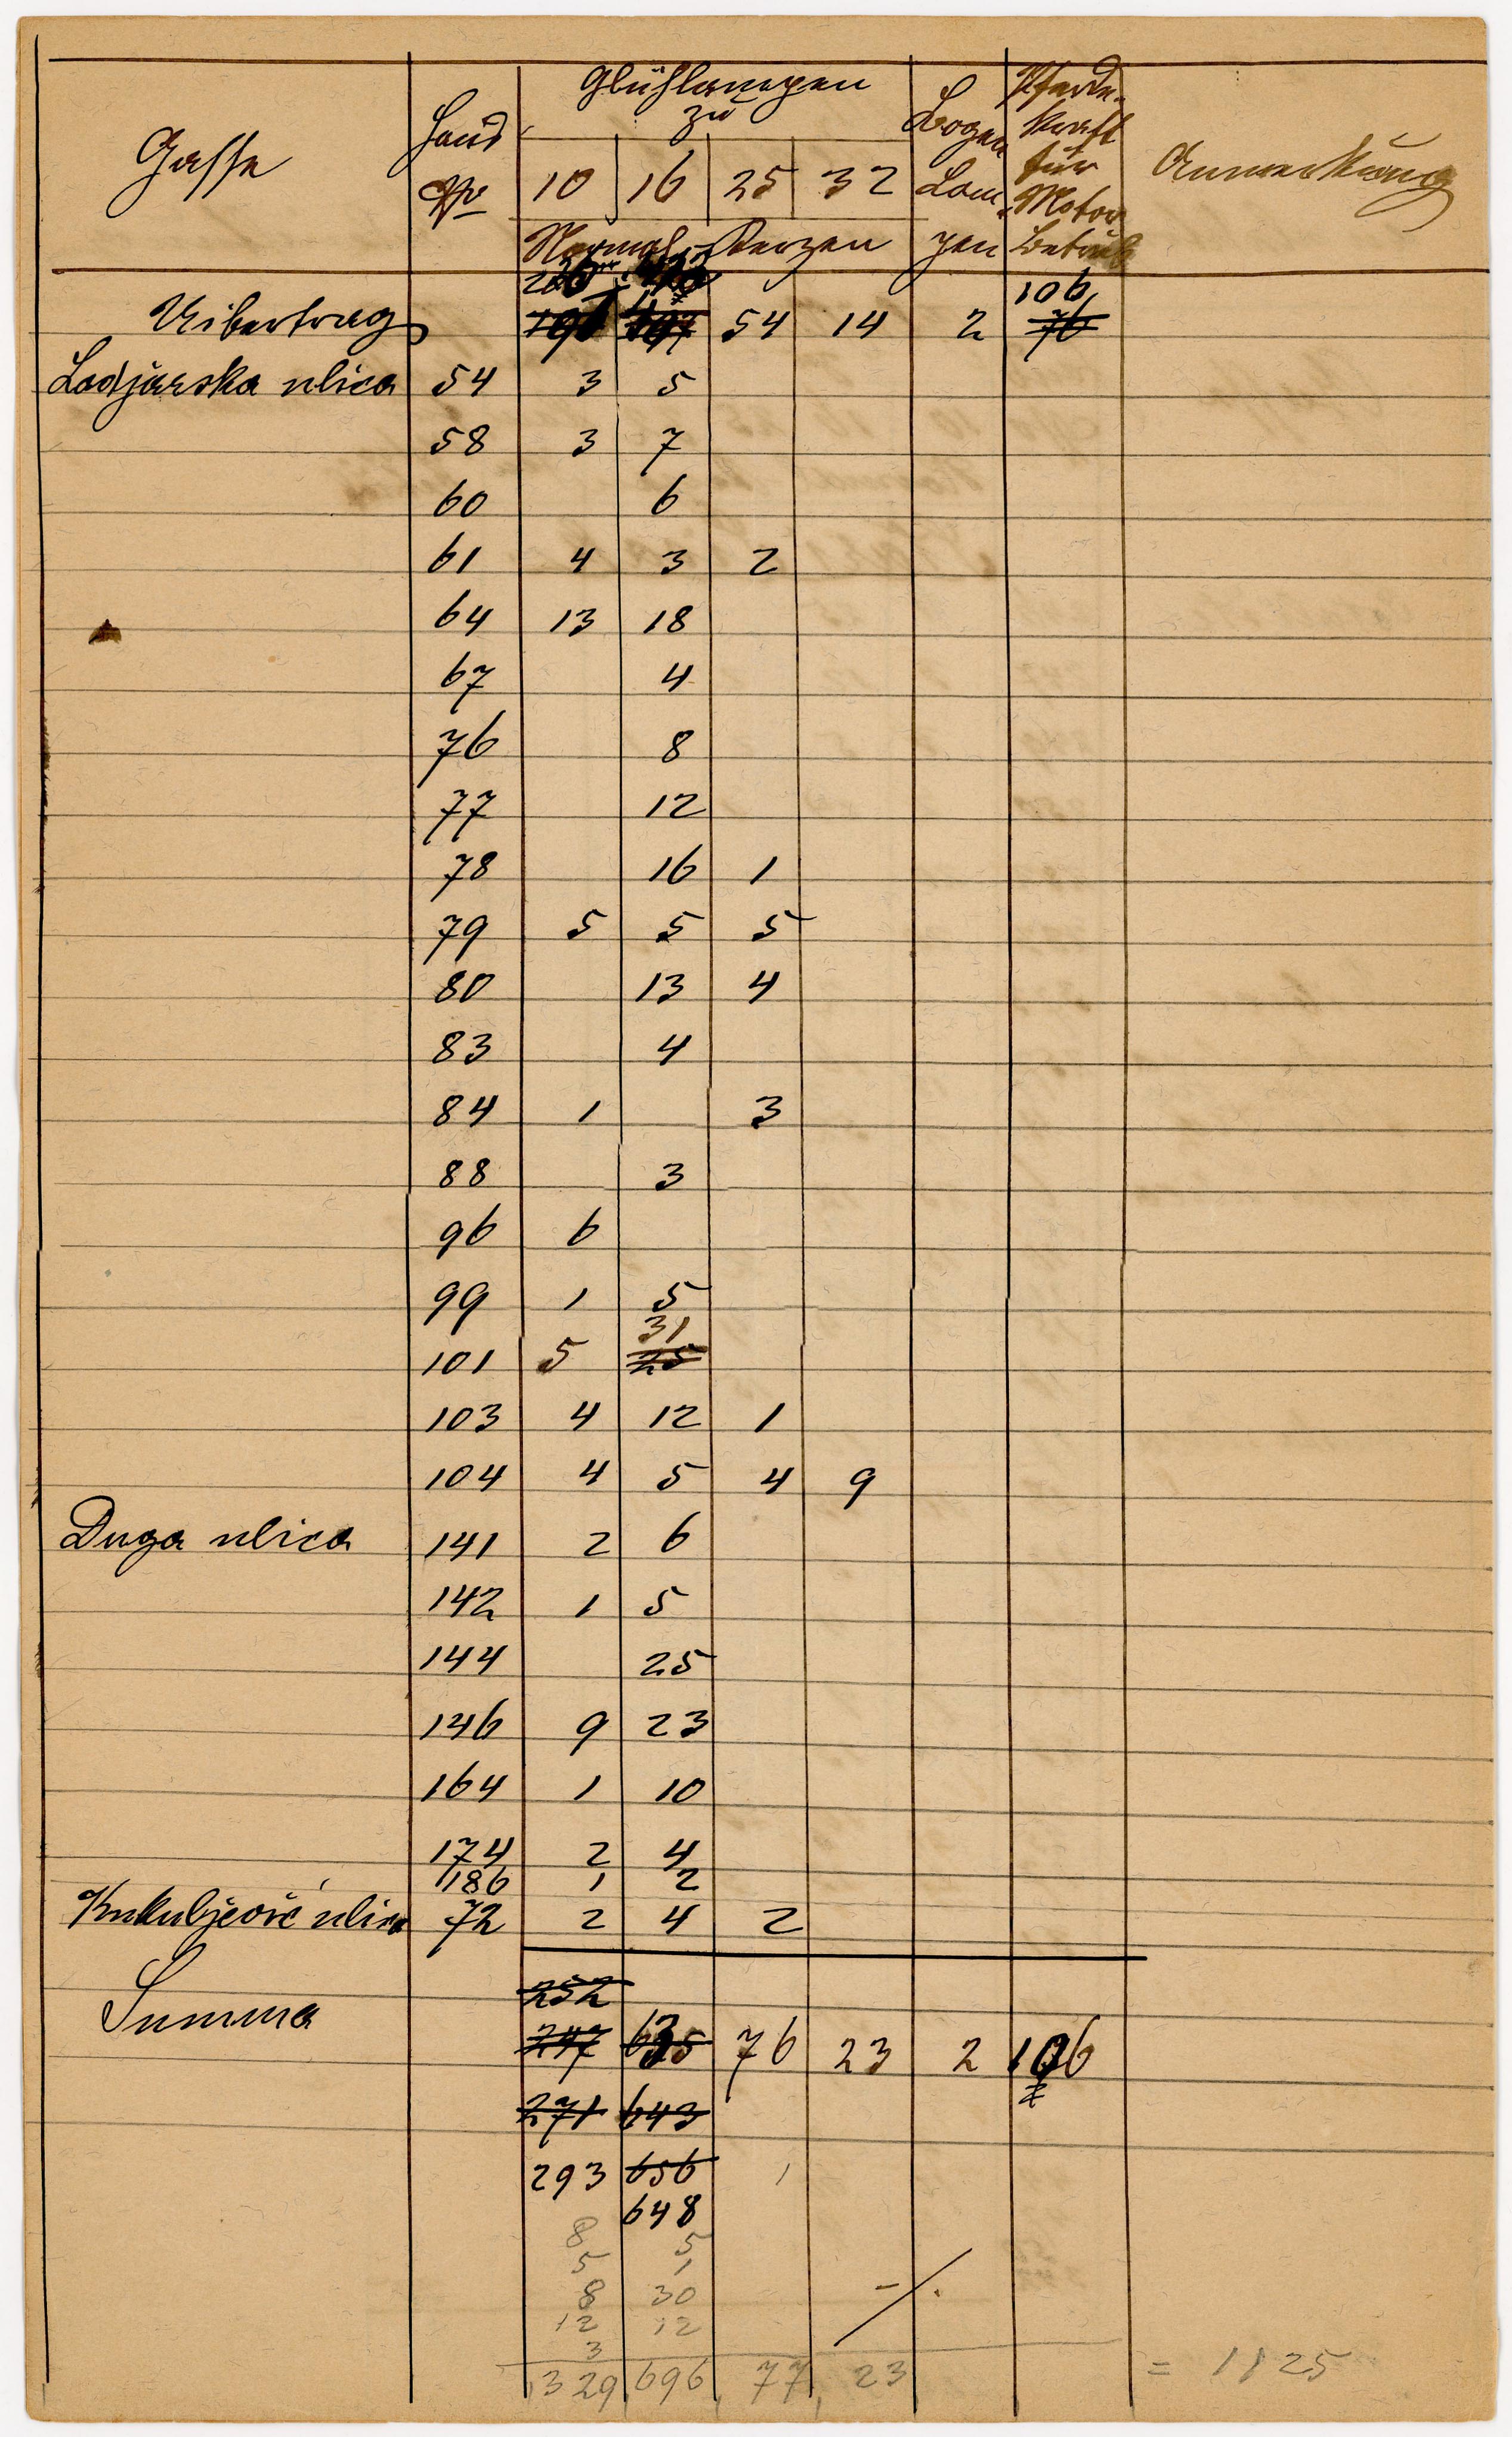 Gasse Haus Nº Glühlampen zu Bogen Lampen Pferdekraft für Motor betrieb Anmerkung
10 16 25 32
Normal-Kerzen
106
Uibertrag 54 14 2 76
Ladjarska ulica 54 3 5
58 3 7
60 6
61 4 3 2
64 13 18
67 4
76 8
77 12
78 16 1
79 5 5 5
80 13 4
83 4
84 1 3
88 3
96 6
99 1 5
31
101 5 25
103 4 12 1
104 4 5 4 9
Duga ulica 141 2 6
142 1 5
144 25
146 9 23
164 1 10
174 2 4
186 1 2
Kukuljević ulica 72 2 4 2
252
Summa 247 635 76 23 2 106
271 643
293 656
648
8 5
5 1
8 30
12 12
3
329 696 77 23 = 1125